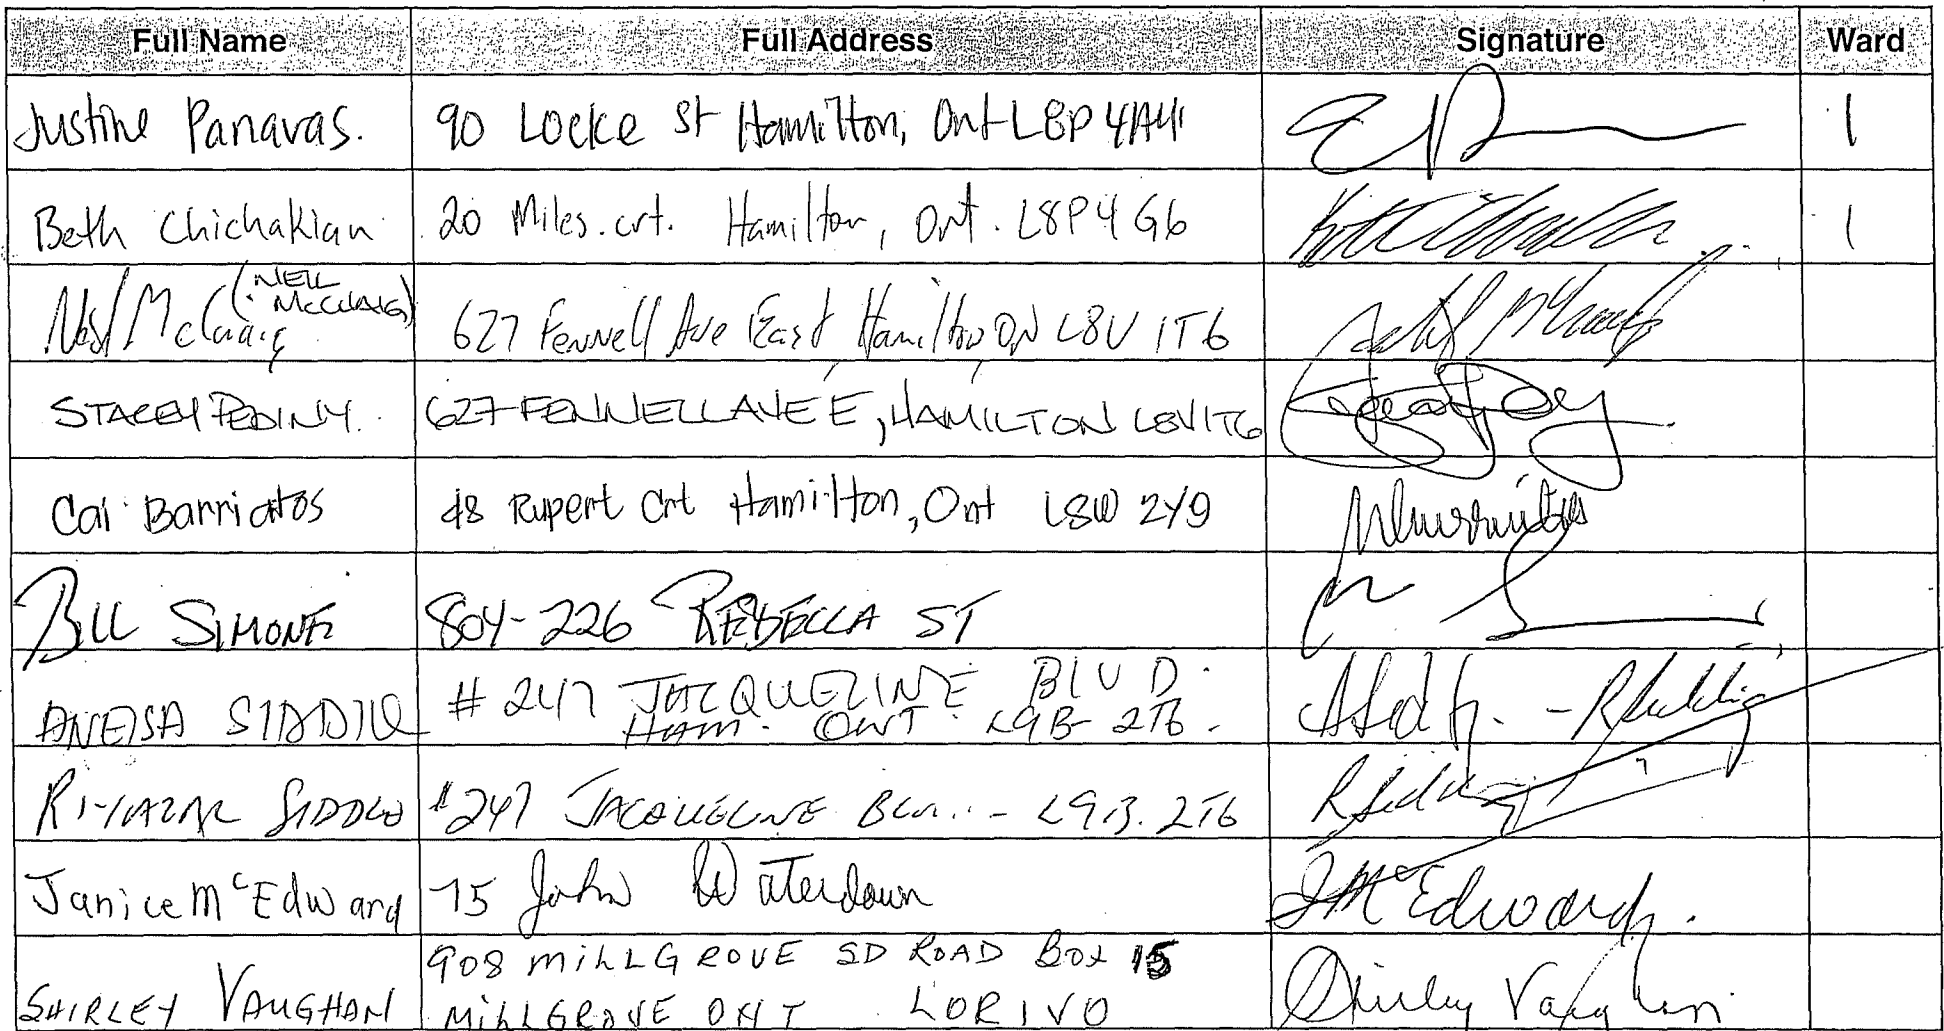 Full Name Full Address Signature Ward
Justine Panavas. 90 Locke St Hamilton, Ont L8P 4A4 1
Beth Chichakian 20 Miles. crt. Hamilton, Ont. L8P 4G6 1
Neil McCraig (NEIL McCRAIG) 627 Fennell Ave East Hamilton ON L8V 1T6
STACEY PEDINY. 627 FENNELL AVE E, HAMILTON L8V1T6
Cai Barrientos 48 Rupert Crt Hamilton, Ont L8W 2Y9
BILL SIMONE 804-226 REBECCA ST
ANEISA SIDDIQ #247 JACQUELINE BLVD.
HAM. ONT. L9B-2T6.
SIDDIQ #247 JACQUELINE L9B. 2T6
Janice McEdward 75 John Waterdown J McEdward.
SHIRLEY VAUGHAN 908 MILLGROVE SD ROAD BOX 15 Shirley Vaughan
MILLGROVE ONT L0R1V0